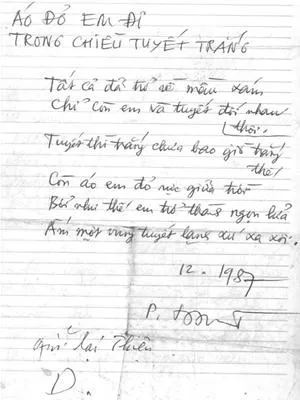 ÁO ĐỎ EM ĐI
TRONG CHIỀU TUYẾT TRẮNG
Tất cả đã trở về màu xám
Chỉ còn em và tuyết đối nhau
thôi.
Tuyết thì trắng chưa bao giờ trắng
thế
Còn áo em đỏ rực giữa trời
Bởi như thế em trở thành ngọn lửa
Ấm một vùng tuyết lạnh xứ xa xôi.
12.1987
P.
gửi lại Thiện
D.